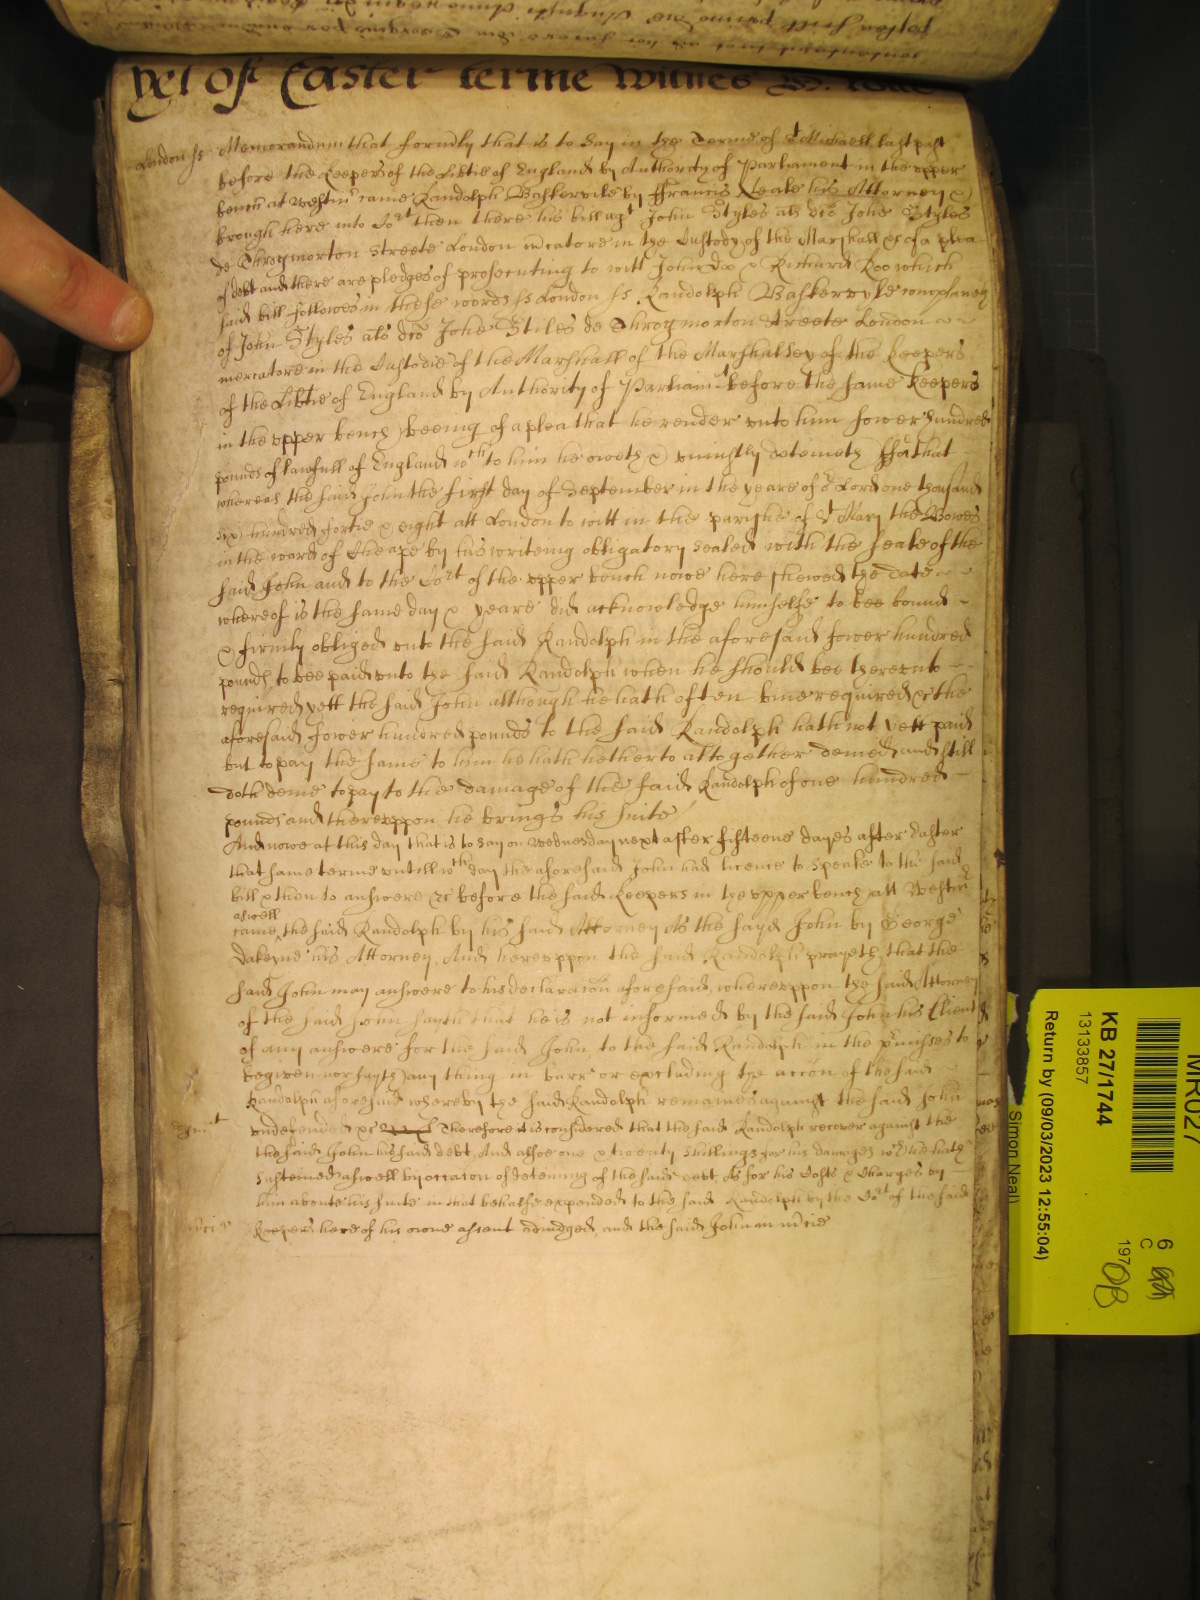 yet of Easter terme Witnes H.
London ss Memorandum that formrly that is to say in the Terme of St Michaell last past
before the Keepers of the Libtie of England by Authority of Parliament in the upper
bench at Westmr came Randolph Baskervile by ffrancis Neale his Attorney &
brough here into Cort then there his bill agt John Styles als dco John Styles
de Throgmorton Streete London mcatore in the Custody of the Marshall &c of a plea
of debt and there are pledges of prosecuting to witt John Doo & Richard Roo which
said bill followes in these words ss London ss Randolph Baskervyle complaneth
of John Styles als dco John Stiles de Throgmorton Streete London
mercatore in the Custodie of the Marshall of the Marshalsey of the Keepers
of the Libtie of England by Authority of Parliamt before the same Keepers
in the upper bench beeing of a plea that he render unto him fower hundred
pounds of lawfull of England wch to him he oweth & uniustly deteineth ffor that
whereas the said John the first day of September in the yeare of or Lord one thousand
six hundred fortie & eight att London to witt in the parishe of St Mary the Bowes
in the ward of Cheape by his writeing obligatory sealed with the seale of the
said John and to the Cort of the upper bench nowe here shewed the date
whereof is the same day & yeare did acknowledge himselfe to bee bound
& firmly obliged unto the said Randolph in the aforesaid fower hundred
pounds to bee paid unto the said Randolph when he should bee thereunto
required yett the said John although he hath often bine required &c the
aforesaid fower hundred pounds to the said Randolph hath not yett paid
but to pay the same to him he hath hetherto altogether denied and still
doth denie to pay to the damage of the said Randolph of one hundred
pounds and thereuppon he brings his suite
And nowe at this day that is to say on Wednesday next after fifteene dayes after Easter
that same terme untill wch day the aforesaid John had licence to speake to the said
bill & then to answere &c before the said Keepers in the upper bench att Westmr
aswell
came the said Randolph by his said Attorney As the sayd John by George
Dakeyne his Attorney And hereuppon the said Randolph prayeth that the
said John may answere to his declaracon aforesaid whereuppon the said Attorney
of the said John sayth that he is not informed by the said John his Client
of any answere for the said John to the said Randolph in the prmisses to
be given nor sayth any thing in barr or excluding the accon of the said
Randolph aforesaid whereby the said Randolph remaines against the said John
undefended &c Therefore it is considered that the said Randolph recover against the
the said John his said debt And alsoe one & twenty shillings for his damages wch he hath
susteined aswell by occasion of deteining of the said debt As for his Costs & Charges by
him aboute his suite in that behalfe expended to the said Randolph by the Cort of the said
Keepers here of his owne assent adiudged and the said John in mcie
mcie
MR027
KB 27/1744
13133857
Return by (09/03/2023 12:55:04)
Simon Neal
6
C
197